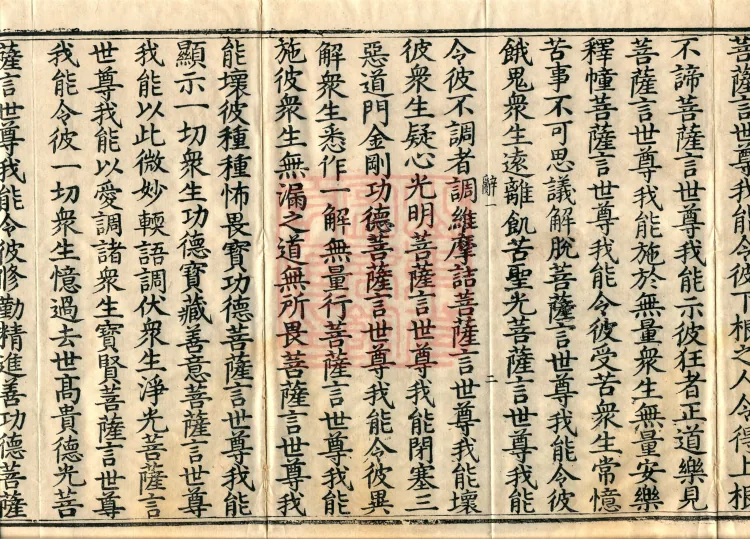 菩薩言世尊我能令彼下根之人令得上根
不諦菩薩言世尊我能示彼狂者正道樂見
菩薩言世尊我能施於無量衆生無量安樂
釋幢菩薩言世尊我能令彼受苦衆生常憶
苦事不可思議解脫菩薩言世尊我能令彼
餓鬼衆生遠離飢苦聖光菩薩言世尊我能
辭一 二
令彼不調者調維摩詰菩薩言世尊我能壞
彼衆生疑心光明菩薩言世尊我能閉塞三
惡道門金剛功德菩薩言世尊我能令彼異
解衆生悉作一解無量行菩薩言世尊我能
施彼衆生無漏之道無所畏菩薩言世尊我
能壞彼種種怖畏寶功德菩薩言世尊我能
顯示一切衆生功德寶藏善意菩薩言世尊
我能以此微妙輭語調伏衆生淨光菩薩言
世尊我能以愛調諸衆生寶賢菩薩言世尊
我能令彼一切衆生憶過去世高貴德光菩
薩言世尊我能令彼修勤精進善功德菩薩